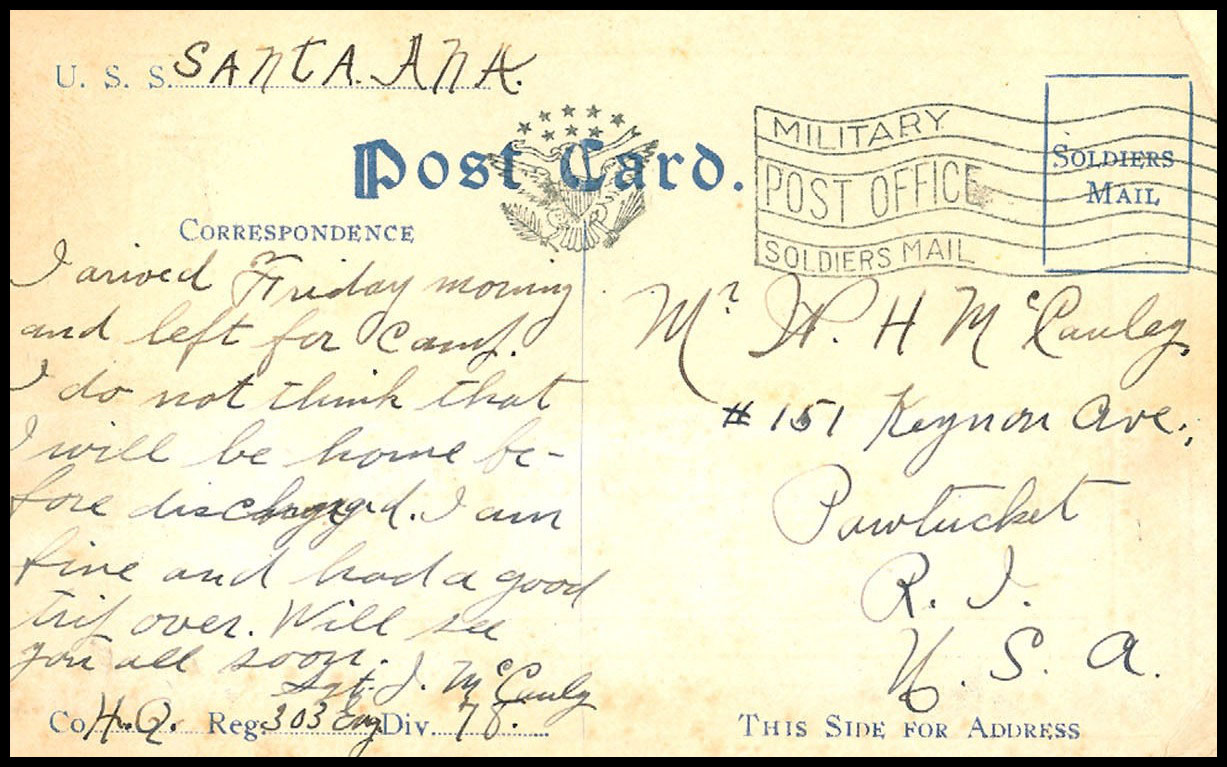 U. S. S. SANTA ANA.
Post Card.
MILITARY
POST OFFICE
SOLDIERS MAIL
SOLDIERS
MAIL
CORRESPONDENCE
I arived Friday morning
and left for Camp.
I do not think that
I will be home be-
fore discharged. I am
fine and had a good
trip over. Will see
you all soon.
Sgt. J. McCauly
Co. H.Q. Reg. 303 Eng Div. 78.
Mr. H McCauley,
#151 Keynon Ave.,
Pawtucket
R. I.
U. S. A.
THIS SIDE FOR ADDRESS